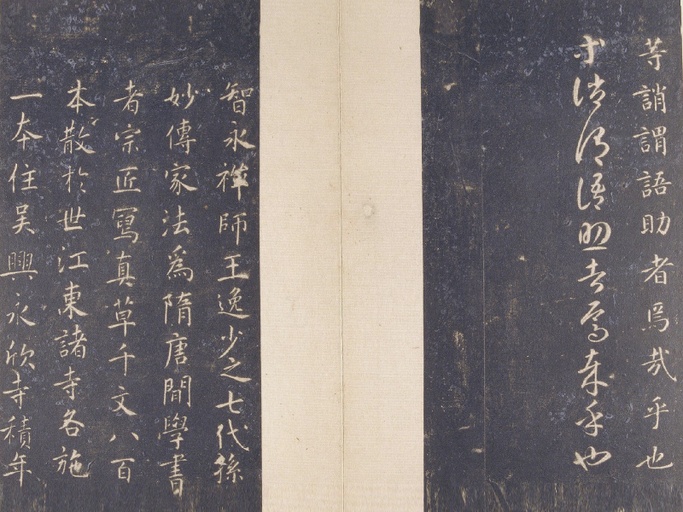 等誚謂語助者焉哉乎也
等誚謂語助者焉哉乎也
智永禅師王逸少之七代孫
妙傳家法爲隋唐間學書
者宗匠寫真草千文八百
本散於世江東諸寺各施
一本住吴興永欣寺積年